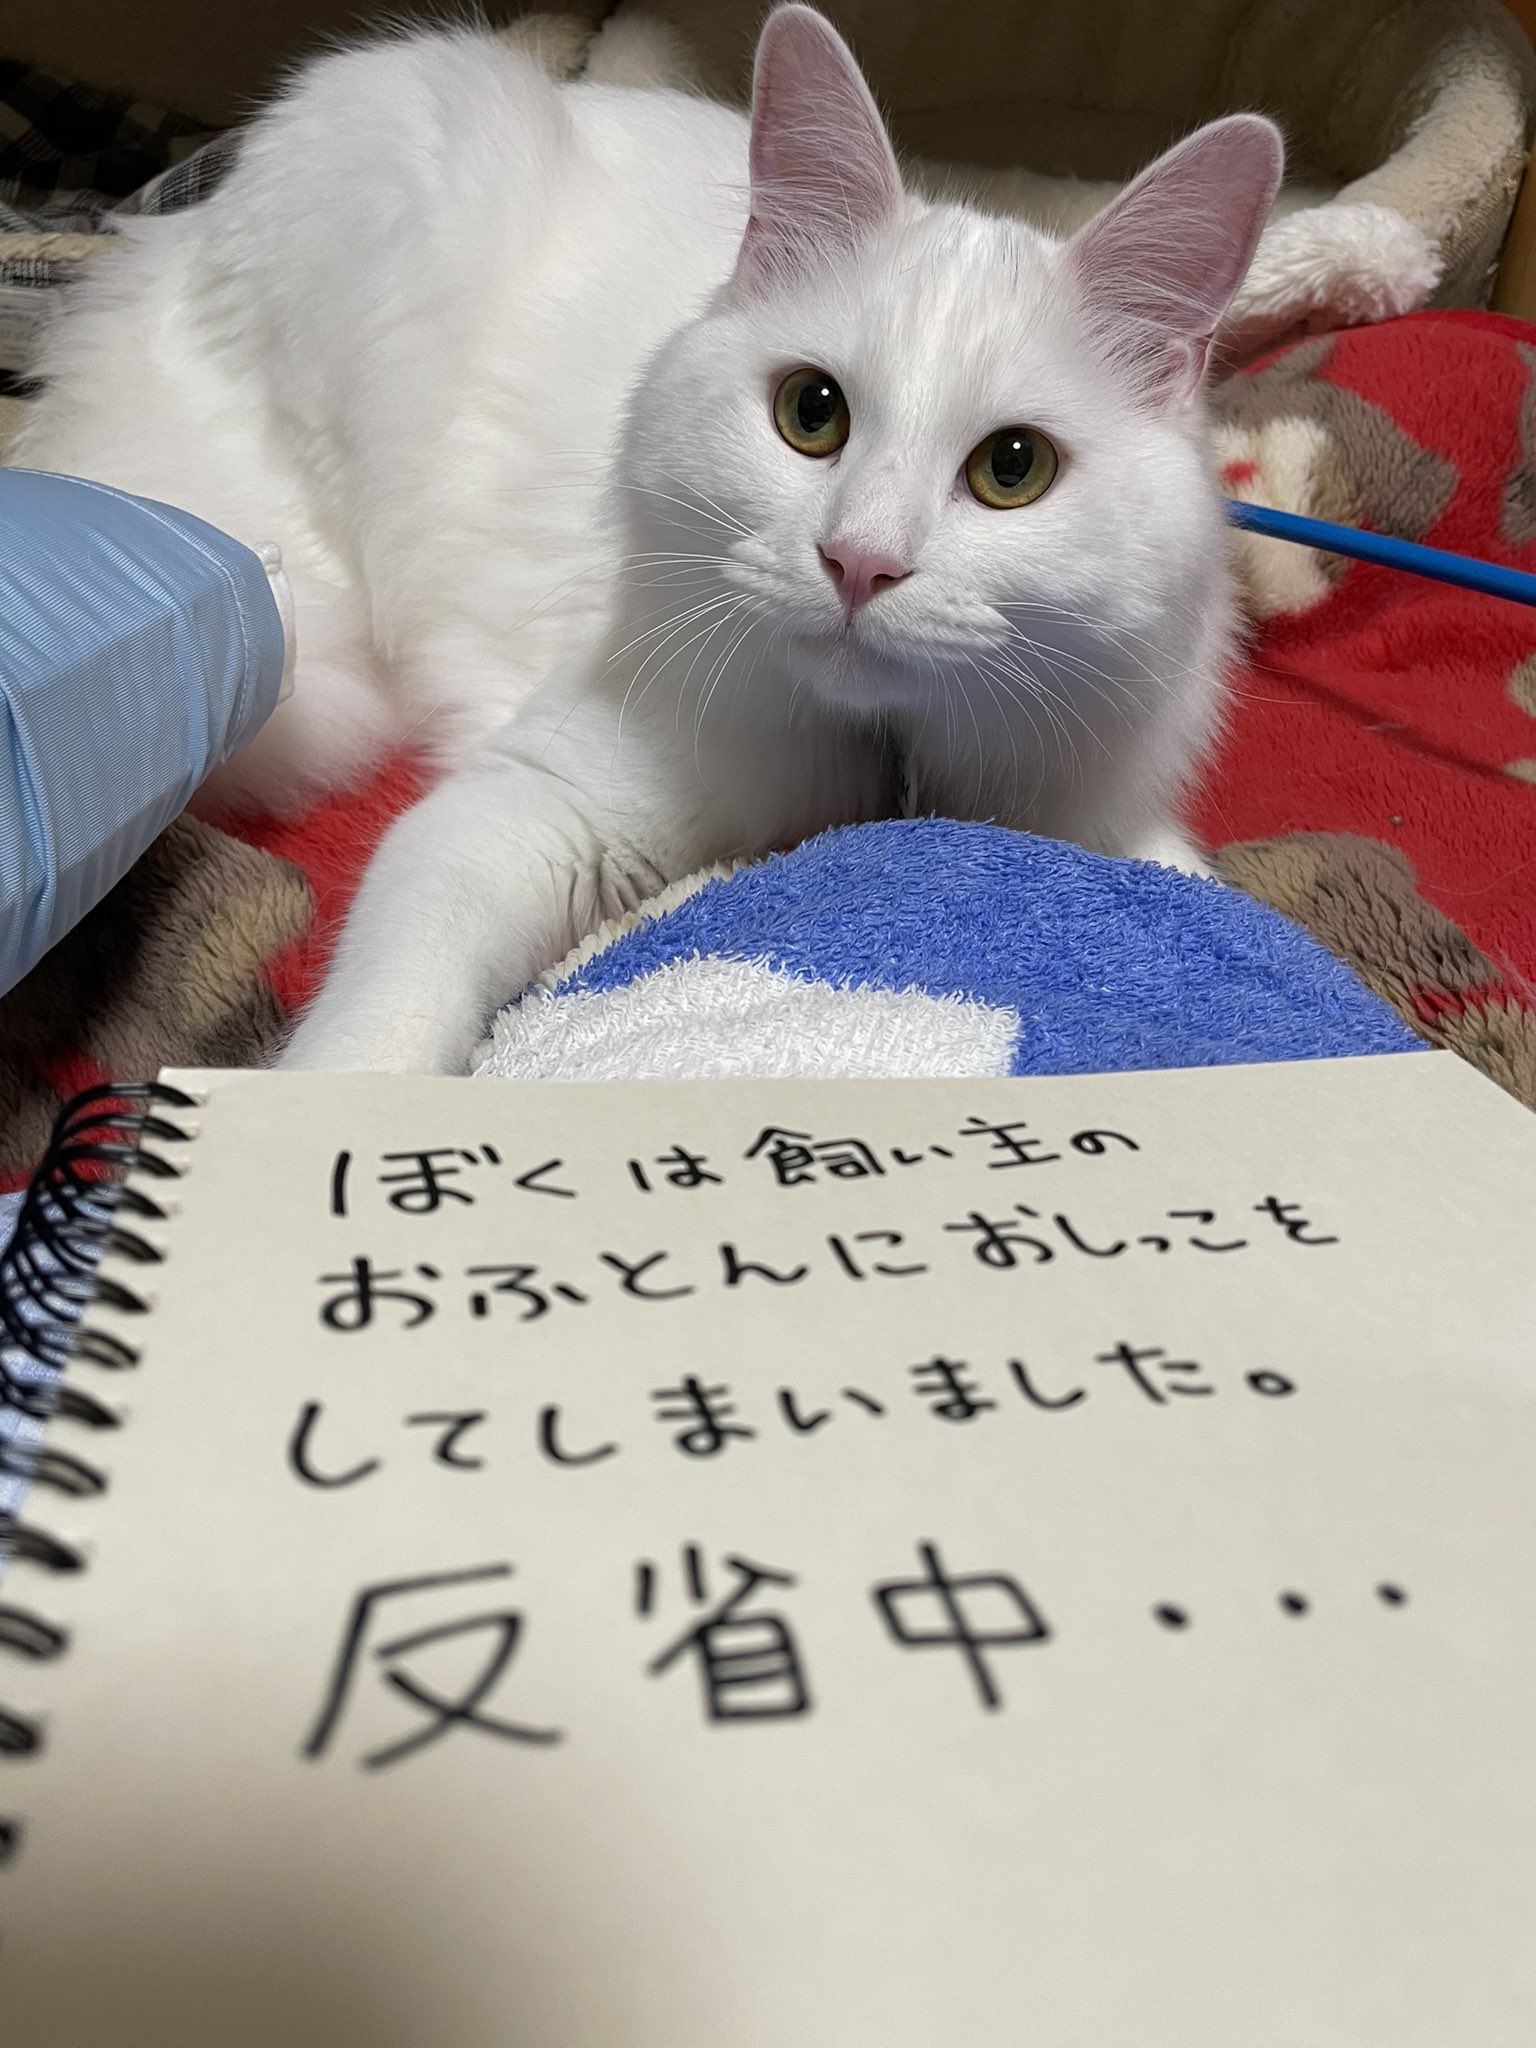 ぼくは飼い主の
おふとんにおしっこを
してしまいました。
反省中・・・